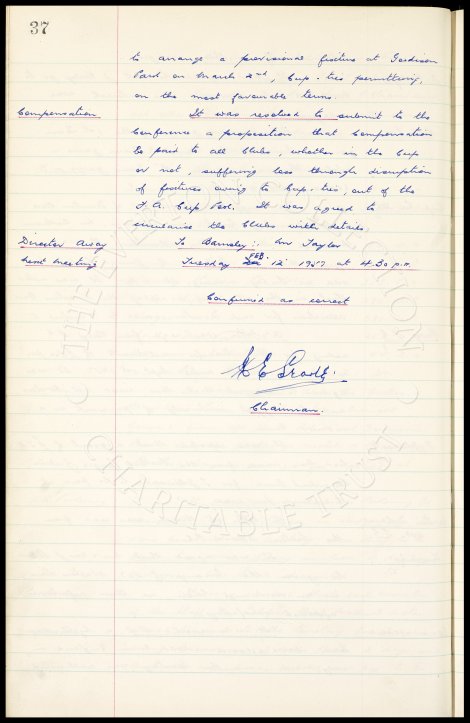 37
to arrange a provisional fixture at Goodison
Park on March 2nd, Cup-ties permitting,
on the most favourable terms
Compensation It was resolved to submit to the
Conference a proposition that Compensation
be paid to all Clubs, whether in the Cup
or not, suffering loss through disruption
of fixtures owing to Cup-ties, out of the
F.A. Cup Pool. It was agreed to
circularise the Clubs with details
Director Away To Barnsley:- Mr Taylor
Next Meeting Tuesday FEB. 12 1957 at 4.30 p.m.
Confirmed as correct
Chairman.
THE EVERTON COLLECTION
CHARITABLE TRUST